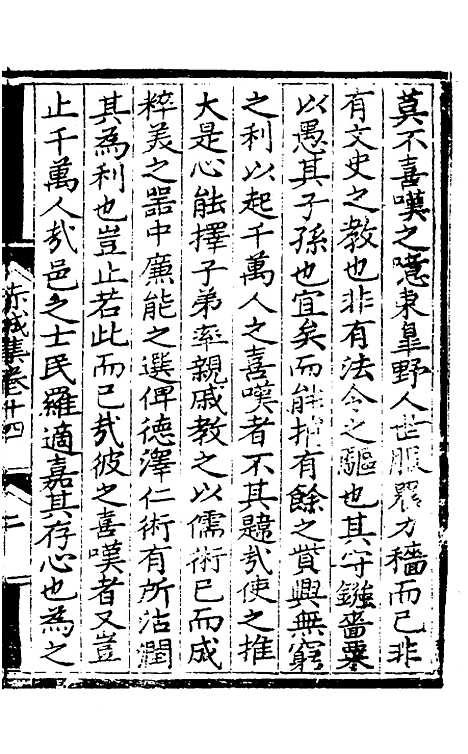 莫不喜嘆之噫東皐野人世服農力穡而已非
有文史之教也非有法令之驅也其守鎡嗇粟
以愚其子孫也宜矣而能捐有餘之貲興無窮
之利以起千萬人之喜嘆者不其韙㢤使之推
大是心能擇子弟率親戚教之以儒術已而成
粹美之器中廉能之選俾德澤仁術有所沾潤
其為利也豈止若此而已㢤彼之喜嘆者又豈
止千萬人㢤邑之士民羅適嘉其存心也為之
赤城集卷十四
二